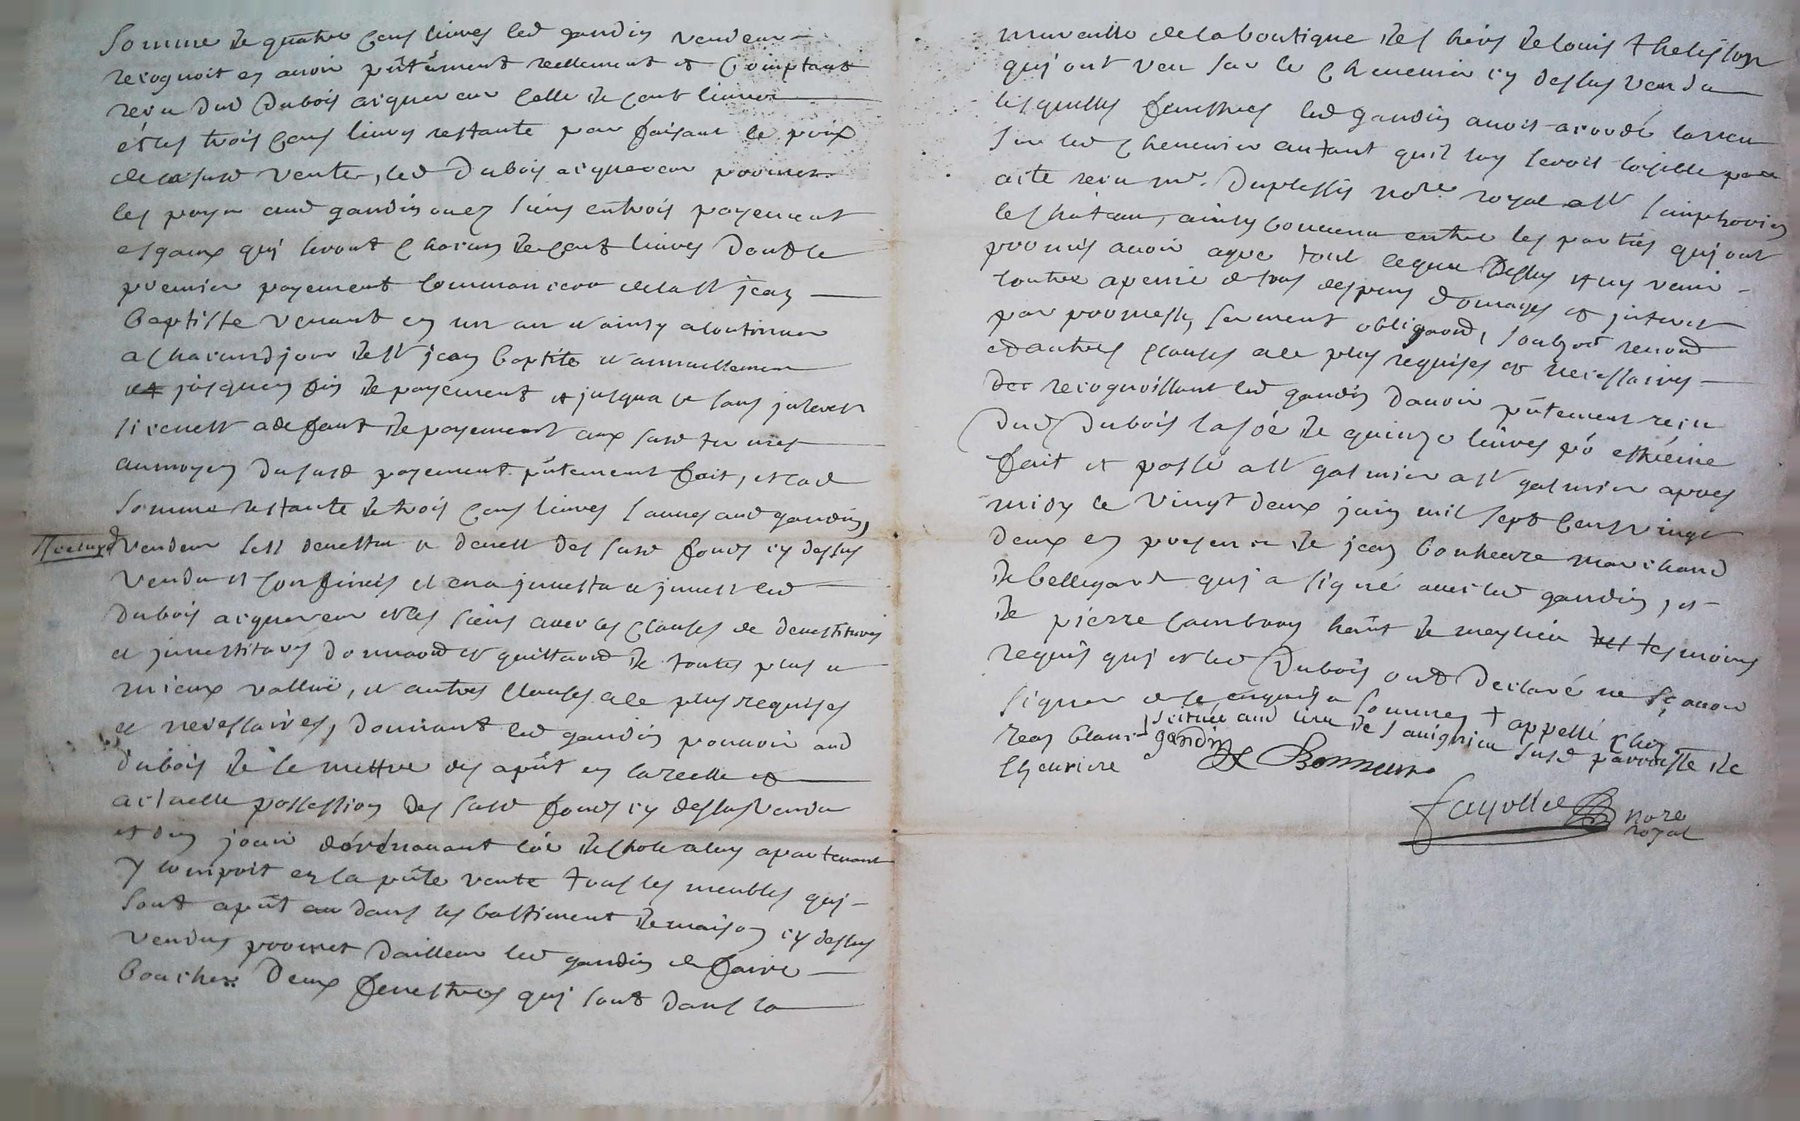 somme de quatre cens livres led gaudin vendeur
recognoit en avoir pñtement reellement et comptant
receu dud Dubois aquereur celle de cent livres
et les trois cens livres restante pour faisant le prix
de la susd vente, led Dubois aquereur promet
les payer aud gaudin ou es siens en trois payement
esgaux qui seront chacun de cent livres dont le
premier payement commancera de la st jean
Baptiste venant en un an et ainsy a continuer
a chacund jour de st jean baptiste et annuellement
jusques fin de payement et jusqua ce sans interest
si ce nest a defaut de payement aux susd termes
au moyen du susd payement pñtement fait, et lad
somme restante de trois cens livres sauves aud gaudin,
vendeur sest devestu et devest des susd fonds cy dessus
vendu et confinés et en a investu et invest led
Dubois aquereur et les siens avec les clauses de devestitures
et investitures donnaõn et quittaõn de toutes plus et
mieux vallue, et autres clauses a ce plus requises
et necessaires, donnant led gaudin pouvoir aud
Dubois de se mettre des apñt en la reelle et
actuelle possession des susd fonds cy dessus vendu
et den jouir dorénavant coe de chose a luy apartenant
y compris en la pñte vente tous les meubles qui
sont apñt dans les bastiment de maison cy dessus
vendus promet dailleur led gaudin de faire
boucher deux fenestres qui sont dans la
muraille de la boutique des heirs de louis thelisson
qui ont veu sur le chenevier cy dessus vendu
lesquelles fenestres led gaudin avoit acordé la veu
sur led chenevier autant quil luy seroit loysible par
acte receu me. Duplessis nore. royal a st simphorien
le chateau, ainsy convenu entre les parties qui ont
promis avoir agre tout ce que dessus et ny venir
contre a peine de tous despens domages et interest
par promesse, serment obligaõn, soubzõn renonõn
et autres clauses a ce plus requises et necessaires
recognoissant led gaudin davoir pñtement receu
dud Dubois la soe de quinze livres po estreine
fait et passé a st galmier a st galmier apres
midy le vingt deux juin mil sept cens vingt
deux en presence de jean bonheure marchand
de bellegarde qui a signé avec led gaudin, et
de pierre hañt de meylieu tesmoins
requis qui et led Dubois ont declaré ne sçavoir
signer de ce enquis et sommes + appellé chez
jean blanc scitué aud lieu de savignieu susd parroisse de
chevriere gaudin Bonneure
fayolle nore
royal